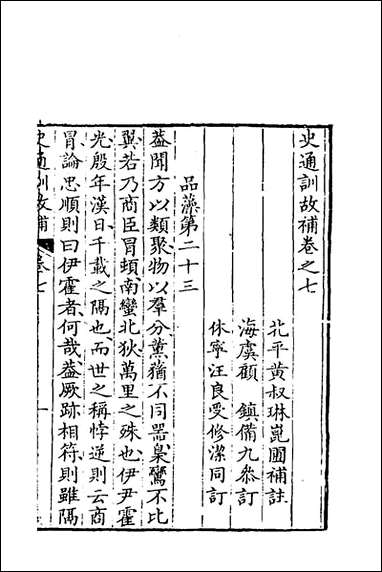 史通訓故補卷之七
北平黃叔琳崑圃補註
海虞顧 鎮備九叅訂
休寧汪良受修潔同訂
品藻第二十三
葢聞方以類聚物以羣分薰蕕不同器梟鸞不比
翼若乃商臣冒頓南蠻北狄萬里之殊也伊尹霍
光殷年漢日千載之隔也而世之稱悖逆則云商
冒論忠順則曰伊霍者何哉葢厥跡相符則雖隔
史通訓故補 卷七 一